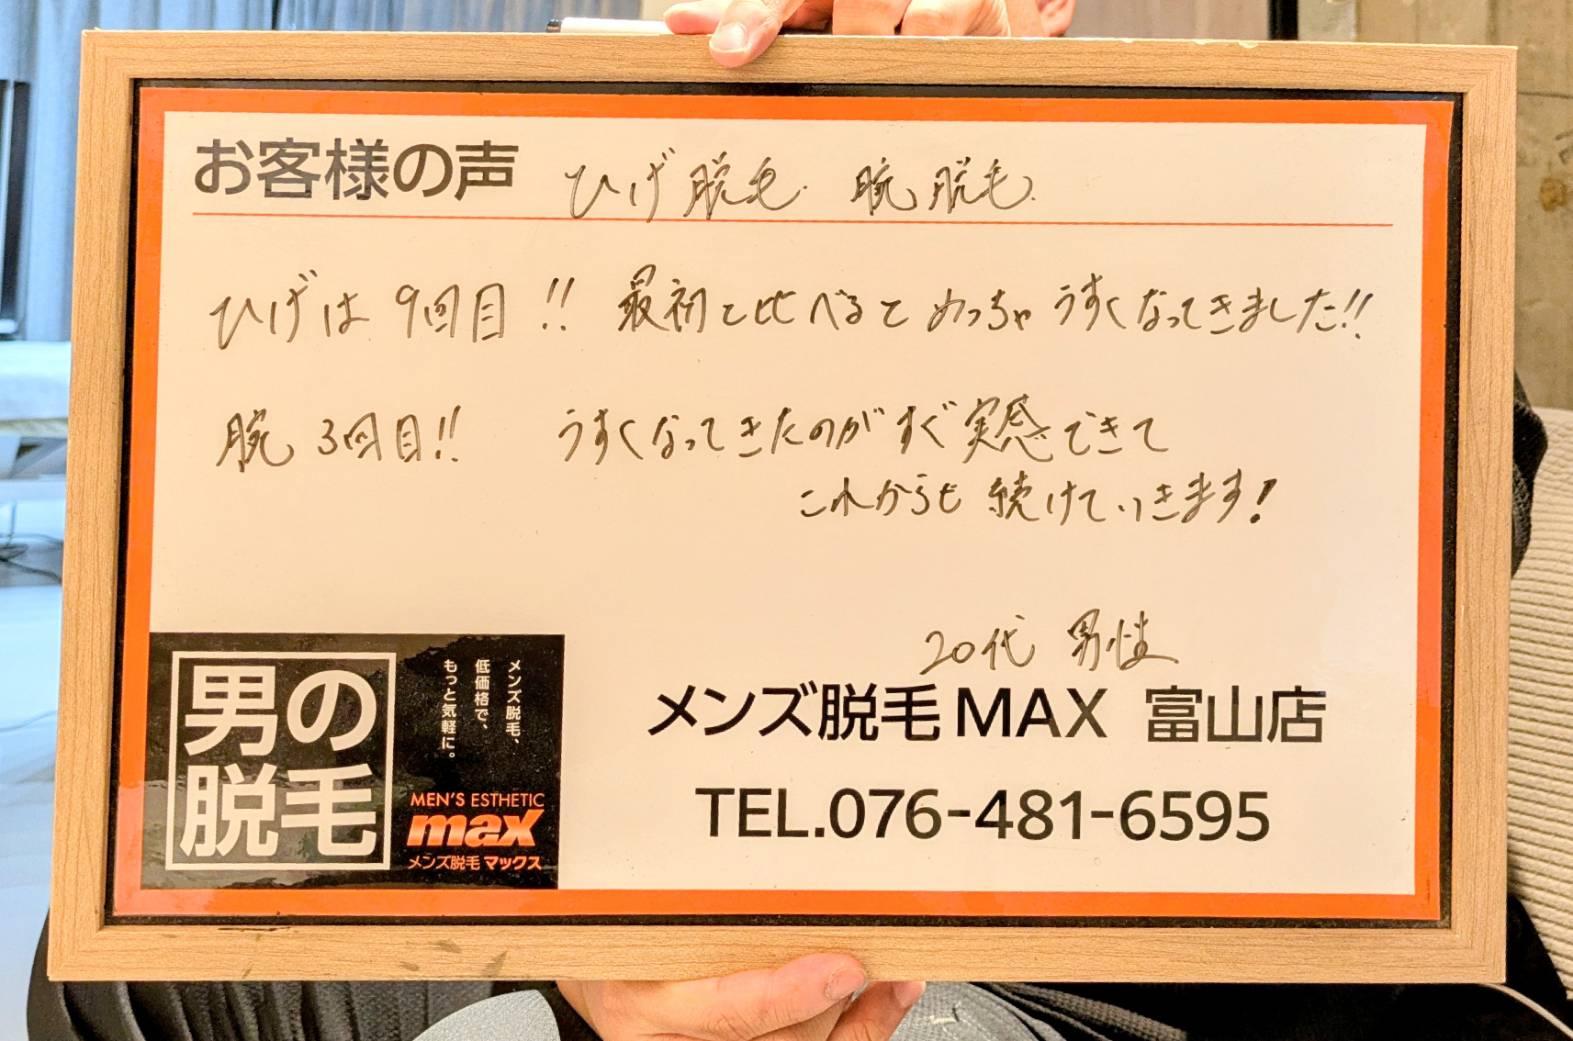 お客様の声 ひげ脱毛. 腕脱毛.
ひげは 9回目!! 最初と比べるとめっちゃうすくなってきました!!
腕 3回目!! うすくなってきたのがすぐ実感できて
これからも続けていきます!
20代 男性
メンズ脱毛MAX 富山店
TEL.076-481-6595
男の
脱毛
メンズ脱毛、
低価格で、
もっと気軽に。
MEN'S ESTHETIC
max
メンズ脱毛マックス